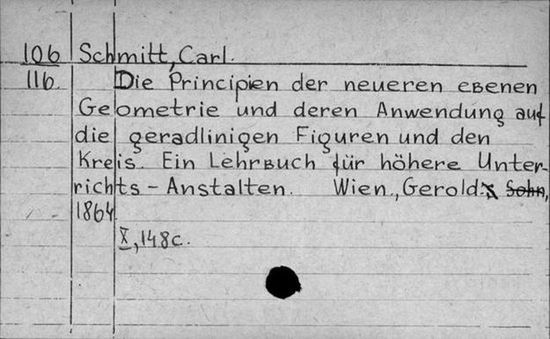 106 Schmitt, Carl.
116 Die Principien der neueren ебenen
Geometrie und deren Anwendung auf
die geradlinigen Figuren und den
Kreis. Ein Lehrвuch für höhere Unter-
richts-Anstalten. Wien, Gerold's Sohn,
1864
X, 148c.